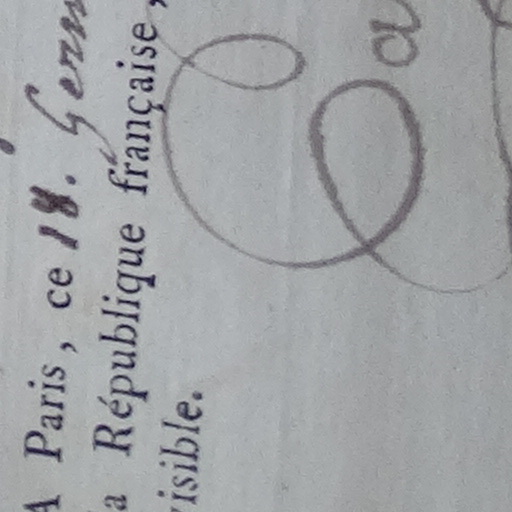 A Paris, ce 18. Germ
a République française,
isible.